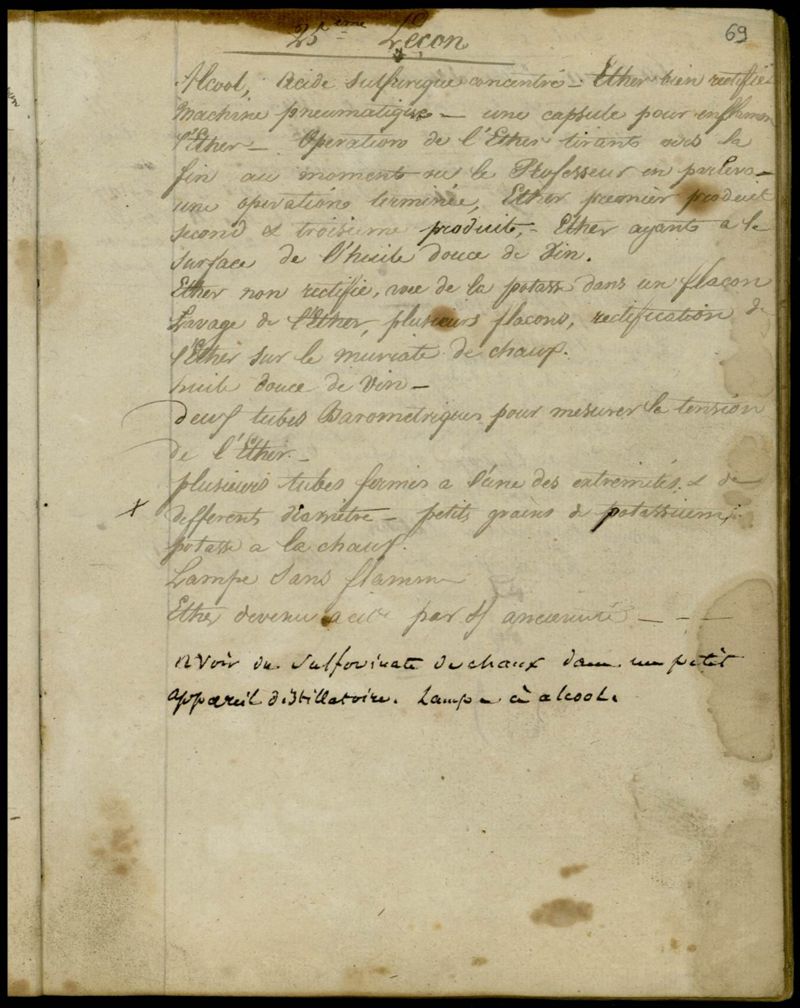 69
25ème Leçon
Alcool, Acide Sulfurique concentré - Ether bien rectifié
Machine pneumatique - une capsule pour enflammer
l'Ether - Operation de l'Ether tirant vers la
fin au moment ou le Professeur en parlera -
une operation terminée, Ether premier produit
second & troisieme produit, - Ether ayant a la
surface de l'huile douce de Vin.
Ether non rectifié, avec de la potasse dans un flacon
Lavage de l'Ether, plusieurs flacons, rectification de
l'Ether sur le muriate de chaux.
huile douce de Vin -
deux tubes Barometriques pour mesurer la tension
de l'Ether. -
plusieurs tubes fermés a l'une des extremités & de
x different diametre - petits grains de potassium
potasse a la chaux.
Lampe Sans flamme
Ether devenu acide par ancienneté - - -
avoir du Sulfovinate de chaux dans un petit
appareil distillatoire. Lampe à alcool.